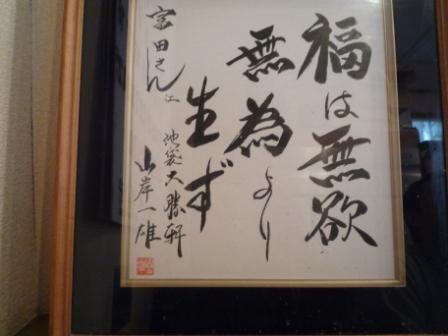 福は無欲
無為より
生ず
宮田さん江
池袋大勝軒
山岸一雄